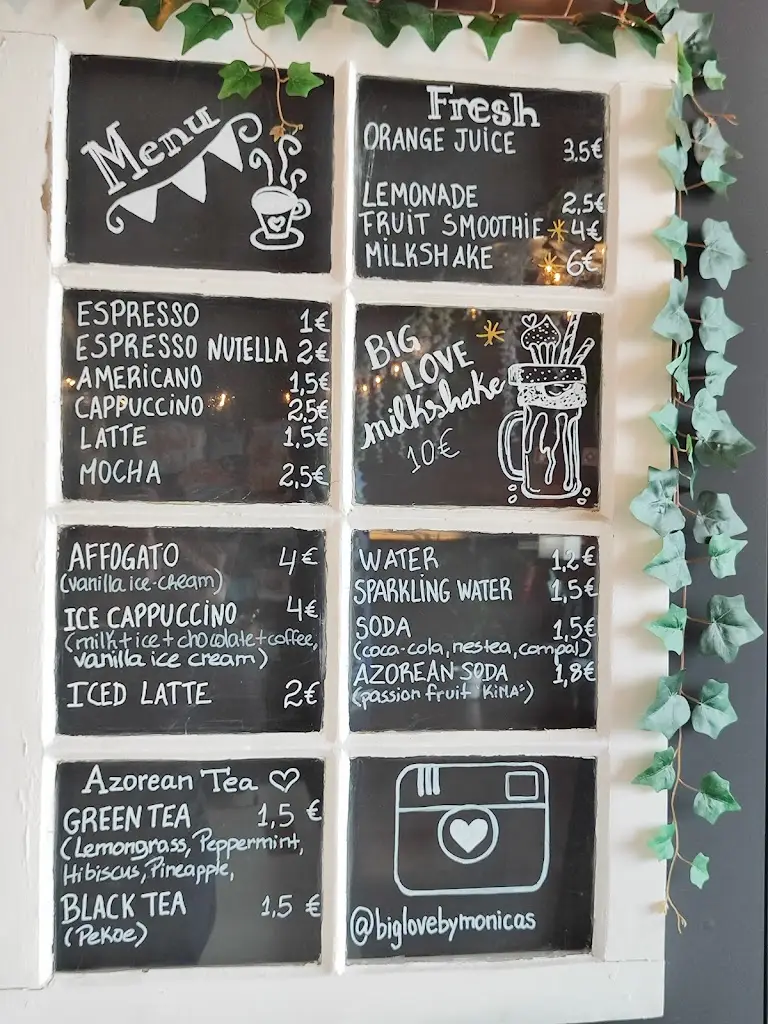 Menu
Fresh
ORANGE JUICE 3.5€
LEMONADE 2,5€
FRUIT SMOOTHIE 4€
MILKSHAKE 6€
ESPRESSO 1€
ESPRESSO NUTELLA 2€
AMERICANO 1,5€
CAPPUCCINO 2,5€
LATTE 1,5€
MOCHA 2,5€
BIG
LOVE
milkshake
10€
AFFOGATO 4€
(vanilla ice-cream)
ICE CAPPUCCINO 4€
(milk+ice+chocolate+coffee,
vanilla ice cream)
ICED LATTE 2€
WATER 1,2€
SPARKLING WATER 1,5€
SODA 1,5€
(coca-cola, nestea, compal)
AZOREAN SODA 1,8€
(passion fruit "KIMA")
Azorean Tea
GREEN TEA 1,5 €
(Lemongrass, Peppermint,
Hibiscus, Pineapple,
BLACK TEA 1,5 €
(Pekoe)
@biglovebymonicas